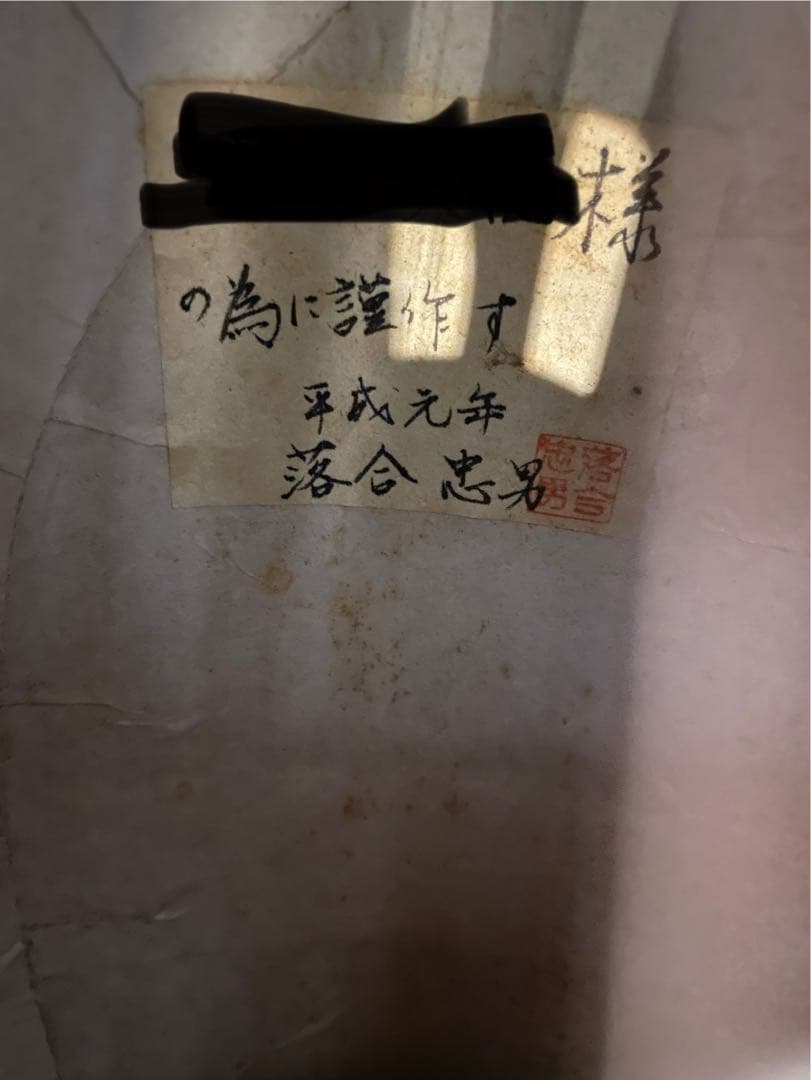 様
の為に謹作す
平成元年
落合 忠男
落合
忠男